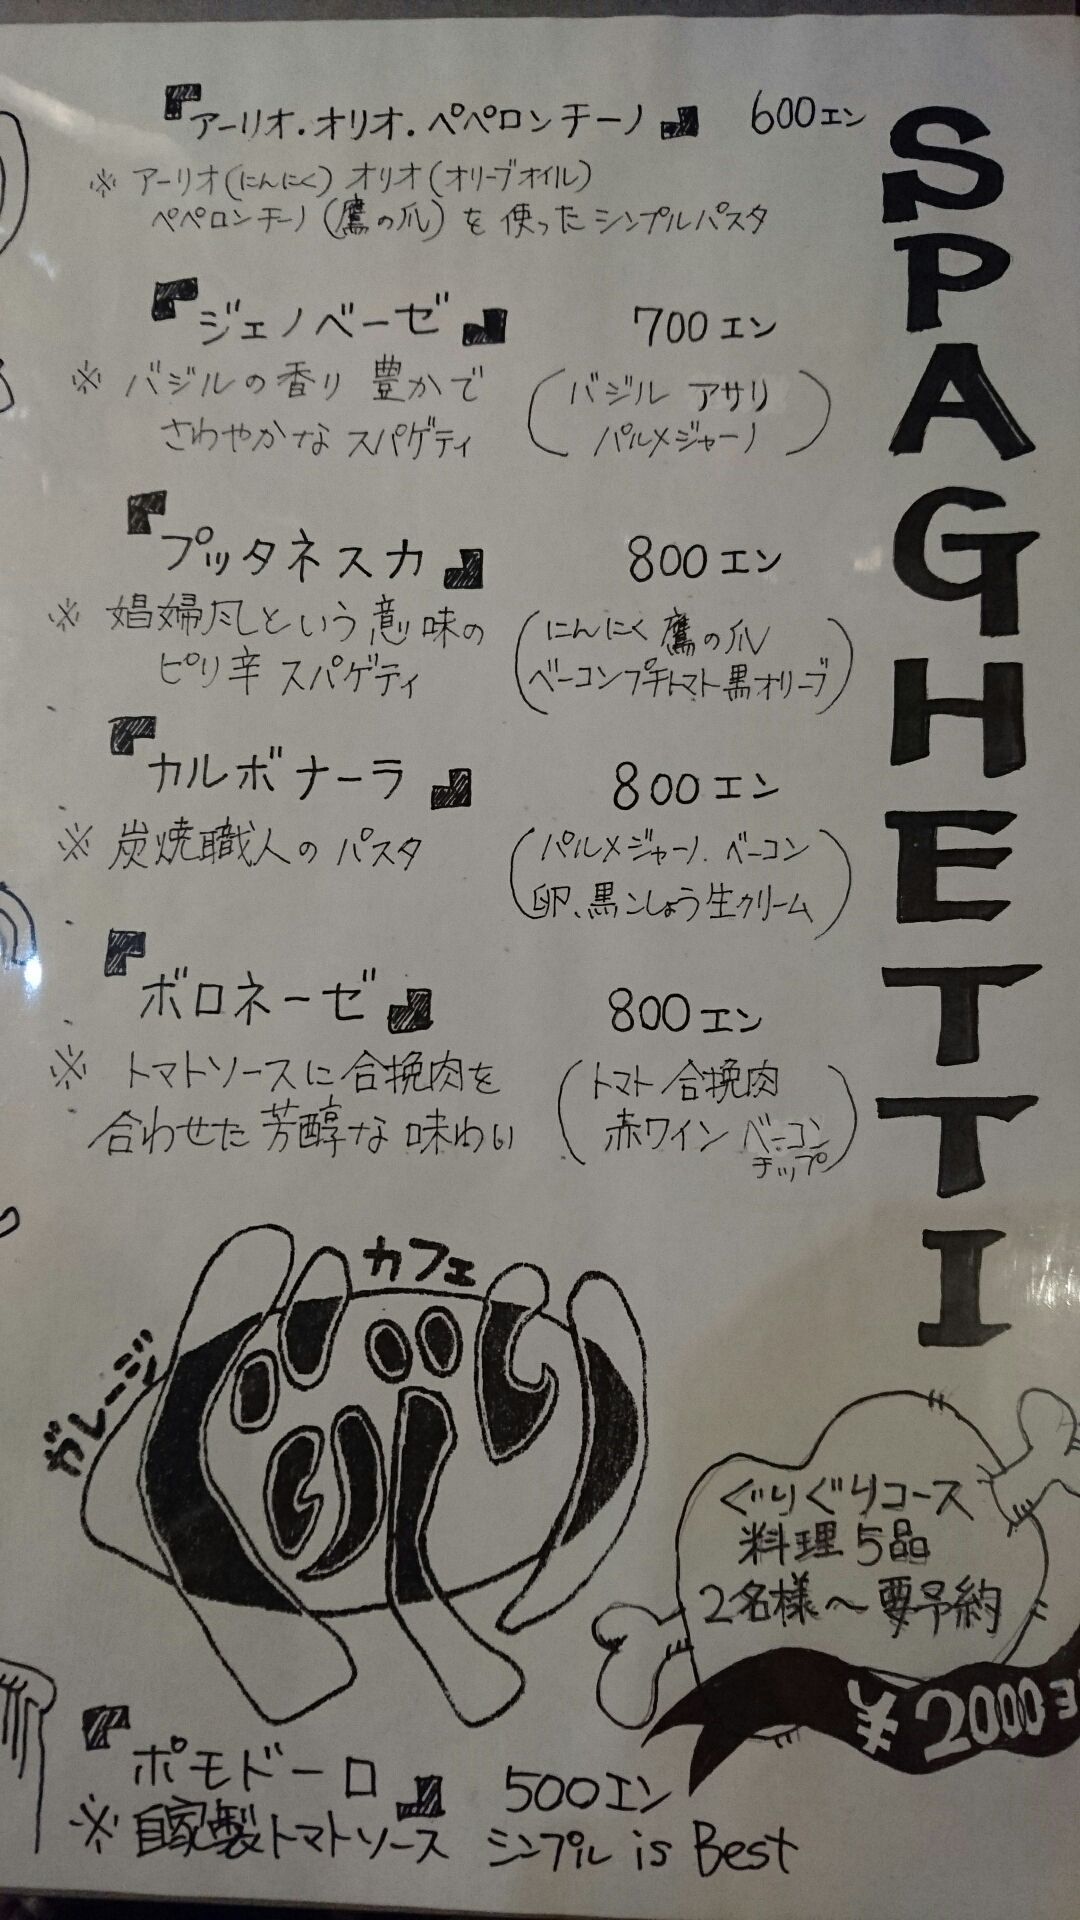 SPAGHETTI
『アーリオ・オリオ・ペペロンチーノ』 600エン
※ アーリオ(にんにく) オリオ(オリーブオイル)
ペペロンチーノ(鷹の爪)を使ったシンプルパスタ
『ジェノベーゼ』 700エン
※ バジルの香り豊かで
さわやかなスパゲティ
(バジル アサリ
パルメジャーノ)
『プッタネスカ』 800エン
※ 娼婦風という意味の
ピリ辛スパゲティ
(にんにく 鷹の爪
ベーコン プチトマト 黒オリーブ)
『カルボナーラ』 800エン
※ 炭焼職人のパスタ
(パルメジャーノ、ベーコン
卵、黒こしょう 生クリーム)
『ボロネーゼ』 800エン
※ トマトソースに合挽肉を
合わせた芳醇な味わい
(トマト 合挽肉
赤ワイン ベーコン
チップ)
ガレージ
カフェ
ぐりぐりコース
料理5品
2名様〜要予約
¥2000エ
『ポモドーロ』 500エン
※自家製トマトソース シンプル is Best